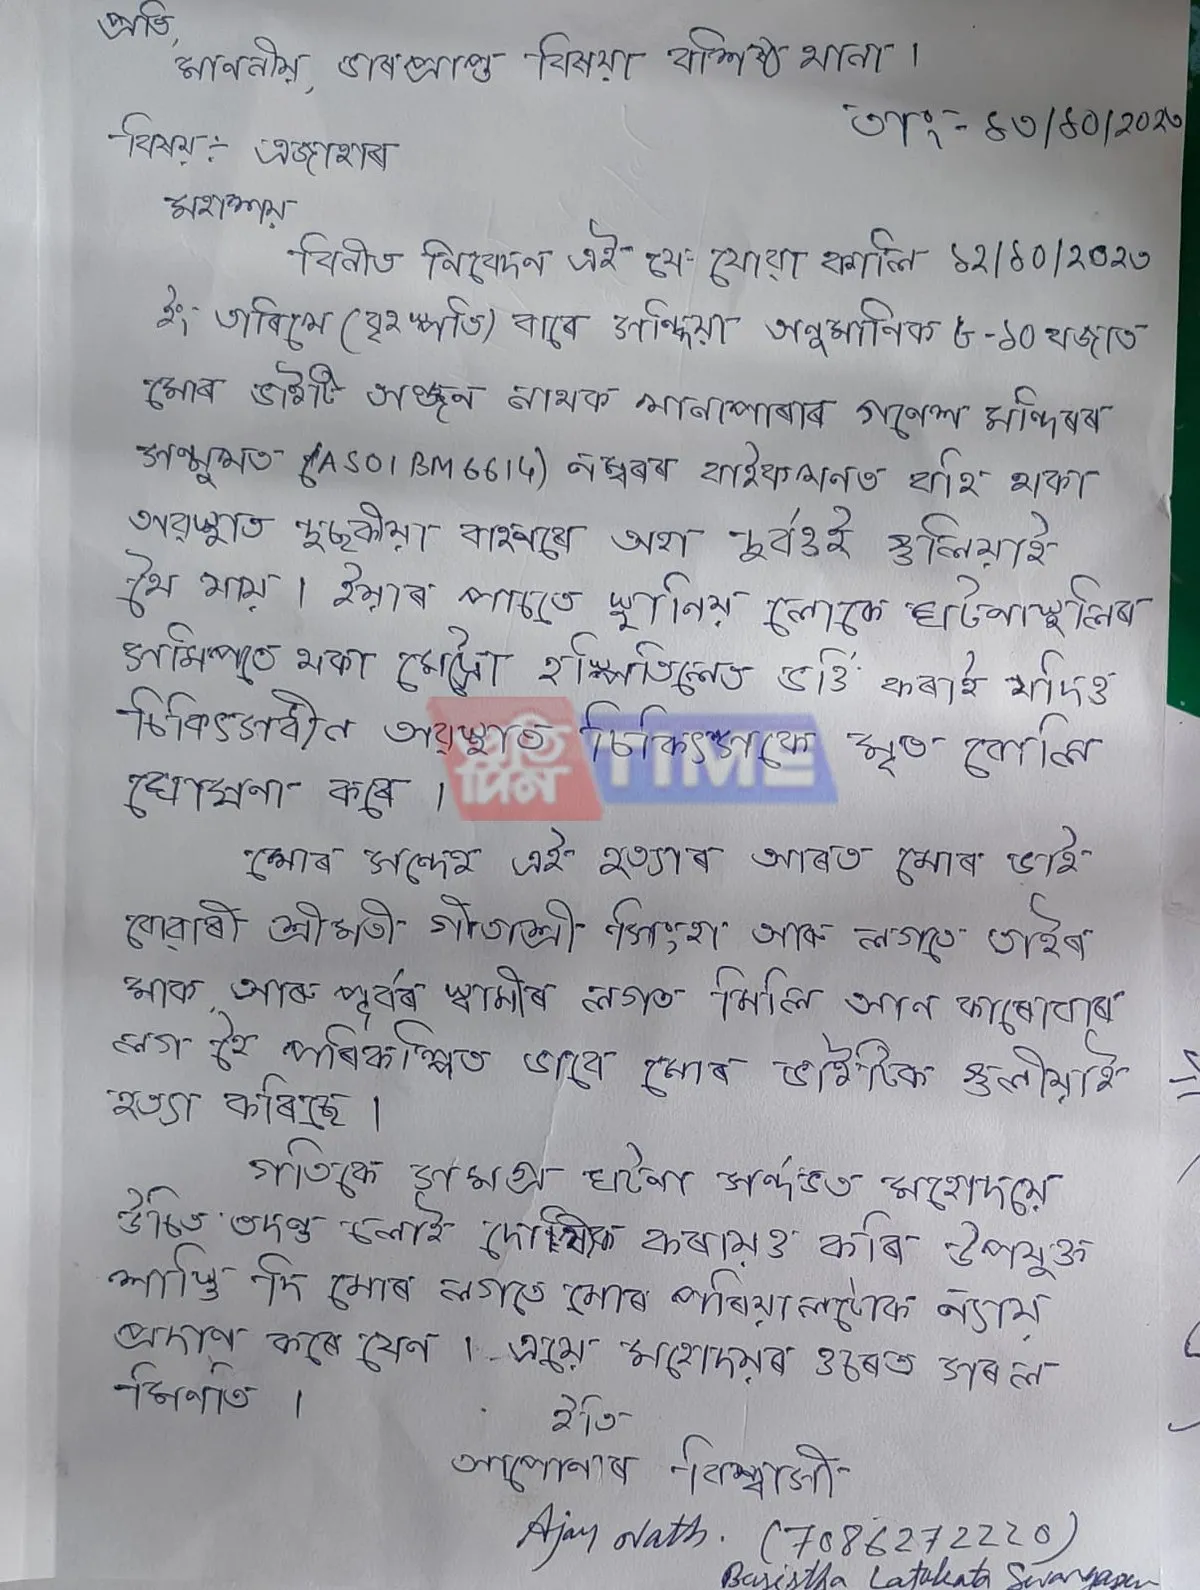 প্ৰতি,
মাননীয়, ভাৰপ্ৰাপ্ত বিষয়া বশিষ্ঠ থানা ।
তাং:- ১৩/১০/২০২৩
বিষয়:- এজাহাৰ
মহাশয়
বিনীত নিবেদন এই যে যোৱা কালি ১২/১০/২০২৩
ইং তাৰিখে (বৃহস্পতি) বাৰে সন্ধিয়া অনুমানিক ৮-১০ বজাত
মোৰ ভাইটি অঞ্জন নামক পাৰাৰ গনেশ মন্দিৰৰ
সন্মুখত (AS01BM6614) নম্বৰৰ বাইকখনত বহি থকা
অৱস্থাত দুচকীয়া বাহনৰে অহা দুৰ্বৃত্তই গুলিয়াই
থৈ যায় । ইয়াৰ পাচতে স্থানিয় লোকে ঘটনাস্থলিৰ
সমিপতে থকা মেট্ৰো হস্পিতিলেত ভৰ্ত্তি কৰাই যদিও
চিকিৎসাধীন অৱস্থাত চিকিৎসকে মৃত বোলি
ঘোষনা কৰে ।
প্ৰতি দিন TIME
মোৰ সন্দেহ এই হত্যাৰ আৰত মোৰ ভাই
বোৱাৰী শ্ৰীমতী গীতাশ্ৰী সিংহ আৰু লগতে তাইৰ
মাক, আৰু পূৰ্বৰ স্বামীৰ লগত মিলি আন কাৰোবাৰ
লগ হৈ পৰিকল্পিত ভাবে মোৰ ভাইটিক গুলীয়াই
হত্যা কৰিছে ।
গতিকে সমগ্ৰ ঘটনা সৰ্ন্দভত মহোদয়ে
উচিত তদন্ত লোই দোষীক কৰায়ত্ত কৰি উপযুক্ত
শাস্তি দি মোৰ লগতে মোৰ পৰিয়ালটোক ন্যায়
প্ৰদান কৰে যেন । এয়ে মহোদয়ৰ ওচৰত সৰল
মিনতি ।
ইতি
আপোনাৰ বিশ্বাসী
Ajay Nath. (7086272220)
Basistha Latakata